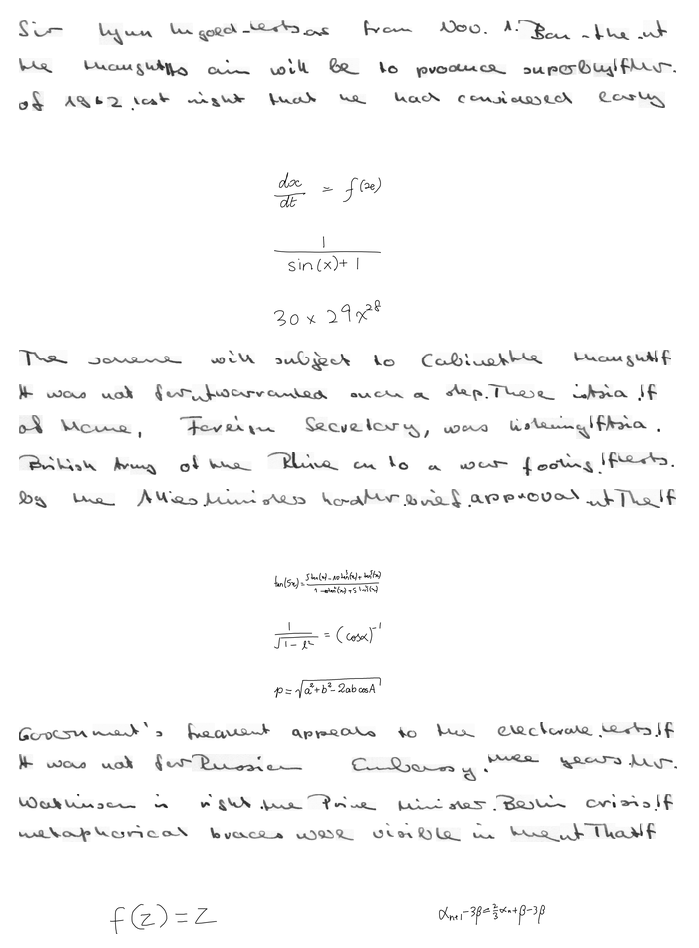 Sir Lynn in good tests as from Nov. 1. Ban the ut
the thought to aim will be to produce superbly If Mr.
of 1962 last night that he had considered early
dx/dt = f(x)
1/(sin(x)+1)
30 × 29x^28
The scheme will subject to Cabinet the thought If
It was not for ut warranted such a step. There is tsia. If
of Home, Foreign Secretary, was listening If tsia.
British Army of the Rhine on to a war footing. If tests.
by the Allies. Ministers hard Mr. brief. approval. ut The If
tan(5x) =
1/√(1-l²) = (cosα)^-1
p = √(a²+b²-2ab cosA)
Government's frequent appeals to the electorate. tests. If
It was not for Russian Embassy. three years. Mr.
Watkinson is right. the Prime Minister. Berlin crisis. If
metaphorical braces were visible in the ut That If
f(z) = z
α_{n+1} - 3β = 2/3 α_n + β - 3β